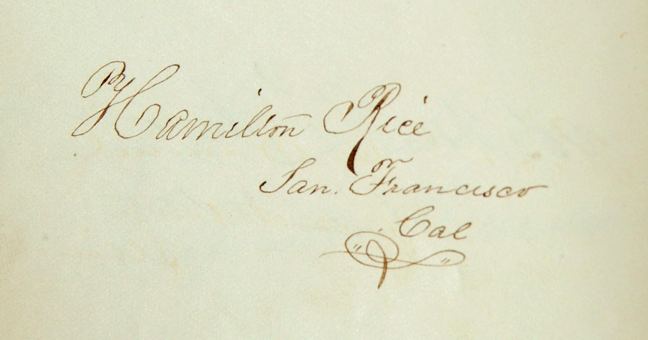 Hamilton Rice
San. Francisco
Cal